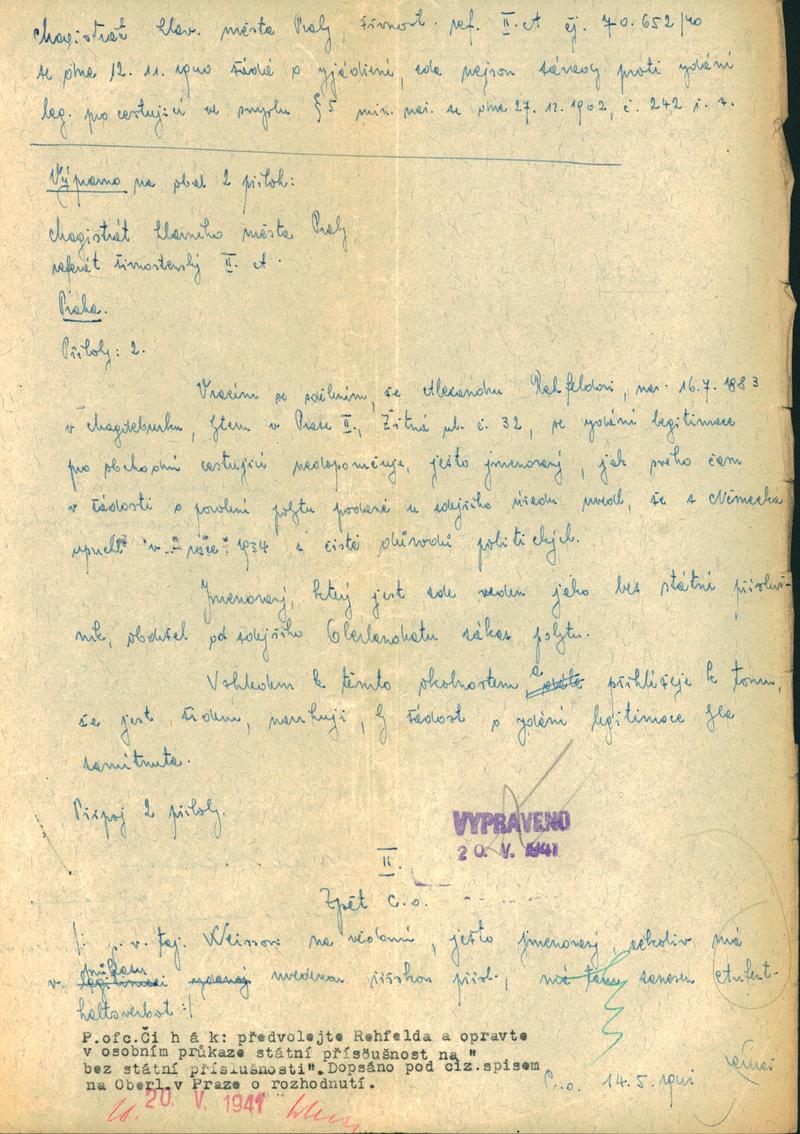 Magistrát hlav. města Prahy, živnost. ref. II. A čj. 70.652/40
ze dne 12. 11. 1940 žádá o vyjádření, zda nejsou závady proti vydání
leg. pro cestující ve smyslu § 5 min. nař. ze dne 27. 12. 1902, č. 242 ř. z.
Výpravno na obal 2 příloh:
Magistrát hlavního města Prahy,
referát živnostenský II. A.
Praha.
Přílohy: 2.
Vracím se sdělením, že Alexandru Rehfeldovi, nar. 16.7. 1883
v Magdeburku, bytem v Praze II., Žitná ul. č. 32, se vydání legitimace
pro obchodní cestující nedoporučuje, ježto jmenovaný, jak svého času
v žádosti o povolení pobytu podané u zdejšího úřadu uvedl, že z Německa
uprchl v roce 1934 z čistě důvodů politických.
Jmenovaný, který jest zde veden jako bez státní přísluš-
ník, obdržel od zdejšího Oberlandratu zákaz pobytu.
Vzhledem k těmto okolnostem a přihlížeje k tomu,
že jest židem, navrhuji, by žádost o vydání legitimace byla
zamítnuta.
Připoj 2 přílohy.
VYPRAVENO
20. V. 1941
II.
Zpět C.o.
/: p. v. taj. Weissovi na vědomí, ježto jmenovaný, ačkoliv má
v průkazu uvedenou říšskou přísl., má zanesen Aufent-
haltsverbot :/
P.ofc.Či h á k: předvolejte Rehfelda a opravte
v osobním průkaze státní přísöušnost na "
bez státní příslušnosti". Dopsáno pod čiz.spisem
na Oberl.v Praze o rozhodnutí.
C.o. 14.5.1941
20. V. 1941